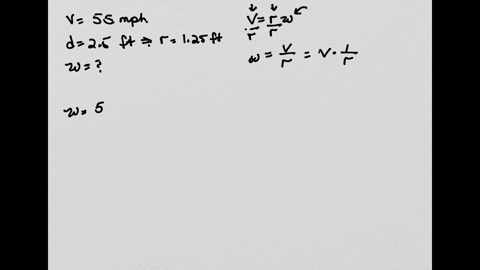 v = 55 mph
d = 2.5 ft ⇒ r = 1.25 ft
w = ?
w = 5
v/r = r/r w
w = v/r = v · 1/r